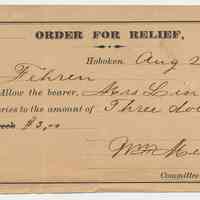 ORDER FOR RELIEF,
Hoboken, Aug 2
Fehren
Allow the bearer, Mrs Lin
ries to the amount of Three do
eek $3,00
Wm
Committee